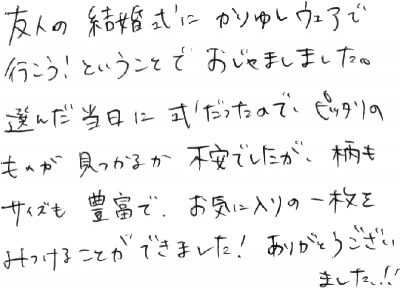 友人の 結婚式に かりゆしウェアで
行こう!ということで おじゃましました。
選んだ当日に 式だったので、ピッタリの
ものが 見つかるか 不安でしたが、柄も
サイズも 豊富で、お気に入りの一枚を
みつけることができました! ありがとうござい
ました!!